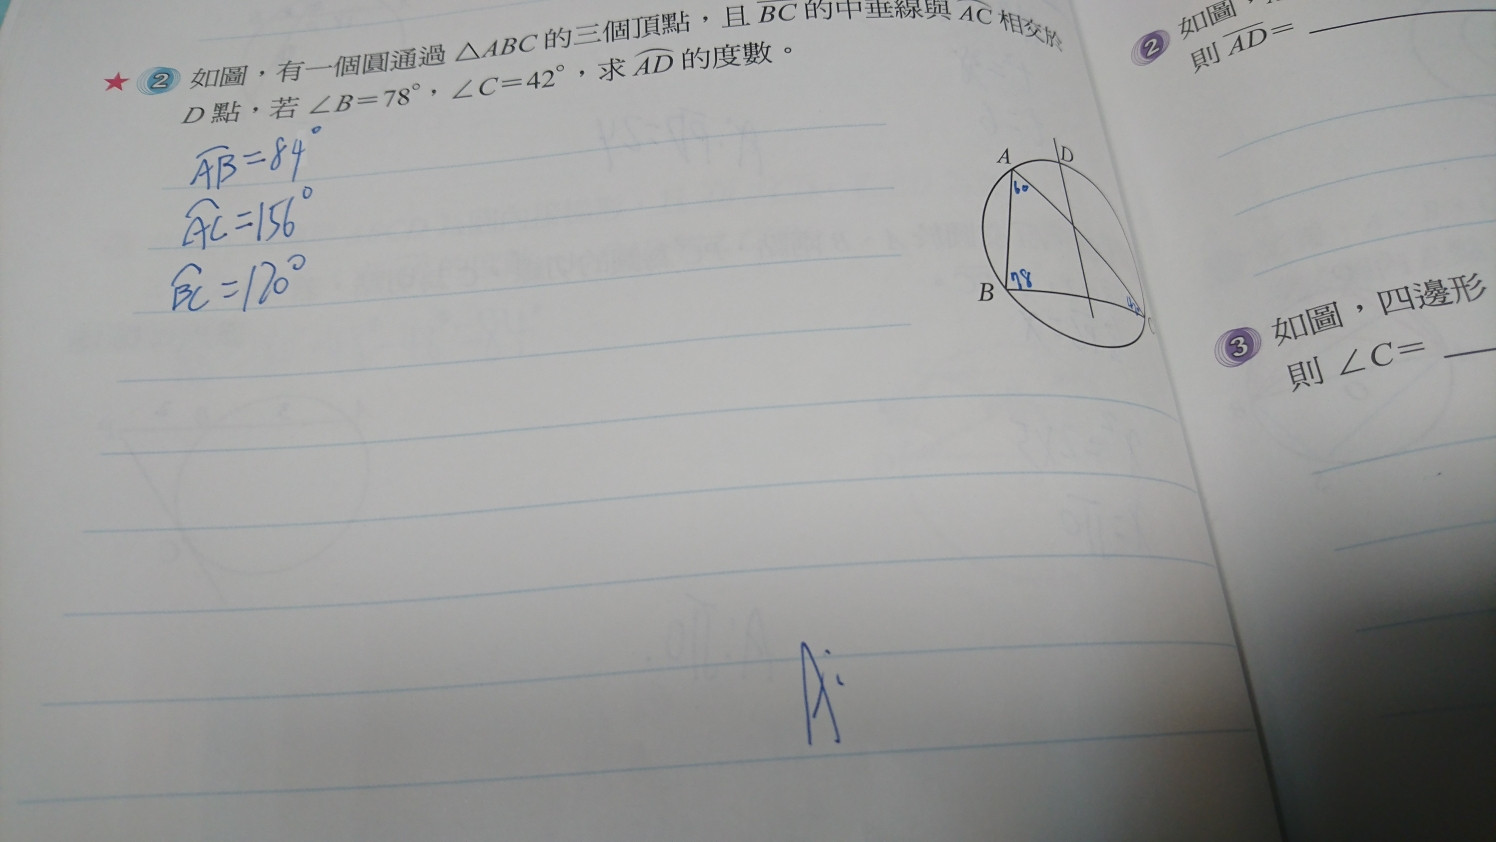 ★ 2 如圖，有一個圓通過 △ABC 的三個頂點，且 BC 的中垂線與 AC 相交於
D 點，若 ∠B＝78°，∠C＝42°，求 AD 的度數。
AB = 84°
AC = 156°
BC = 120°
A D
60
B 78
A:
2 如圖，
則 AD＝
3 如圖，四邊形
則 ∠C＝